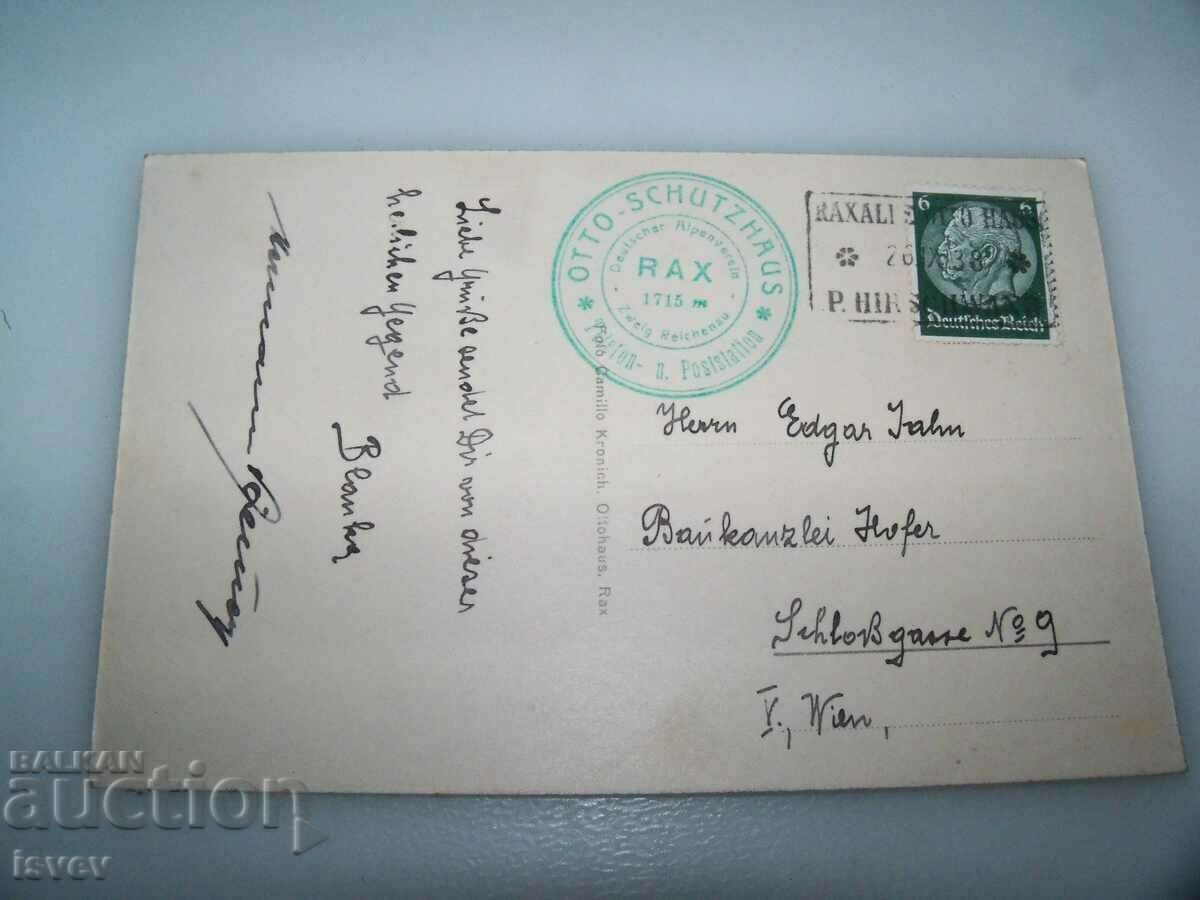 Liebe Grüße sendet Dir von dieser
herlichen Gegend
Blanka
OTTO-SCHUTZHAUS
Deutscher Alpenverein
RAX
1715 m
Zweig Reichenau
Telefon- u. Poststation
RAXALPE OTTO HAUS
P. HIRSCHWANG
6 6
Deutsches Reich
Foto Camillo Kronich, Ottohaus, Rax
Herrn Edgar Jahn
Baukanzlei Hofer
Schloßgasse No 9
V., Wien,
BALKAN
auction
isvev